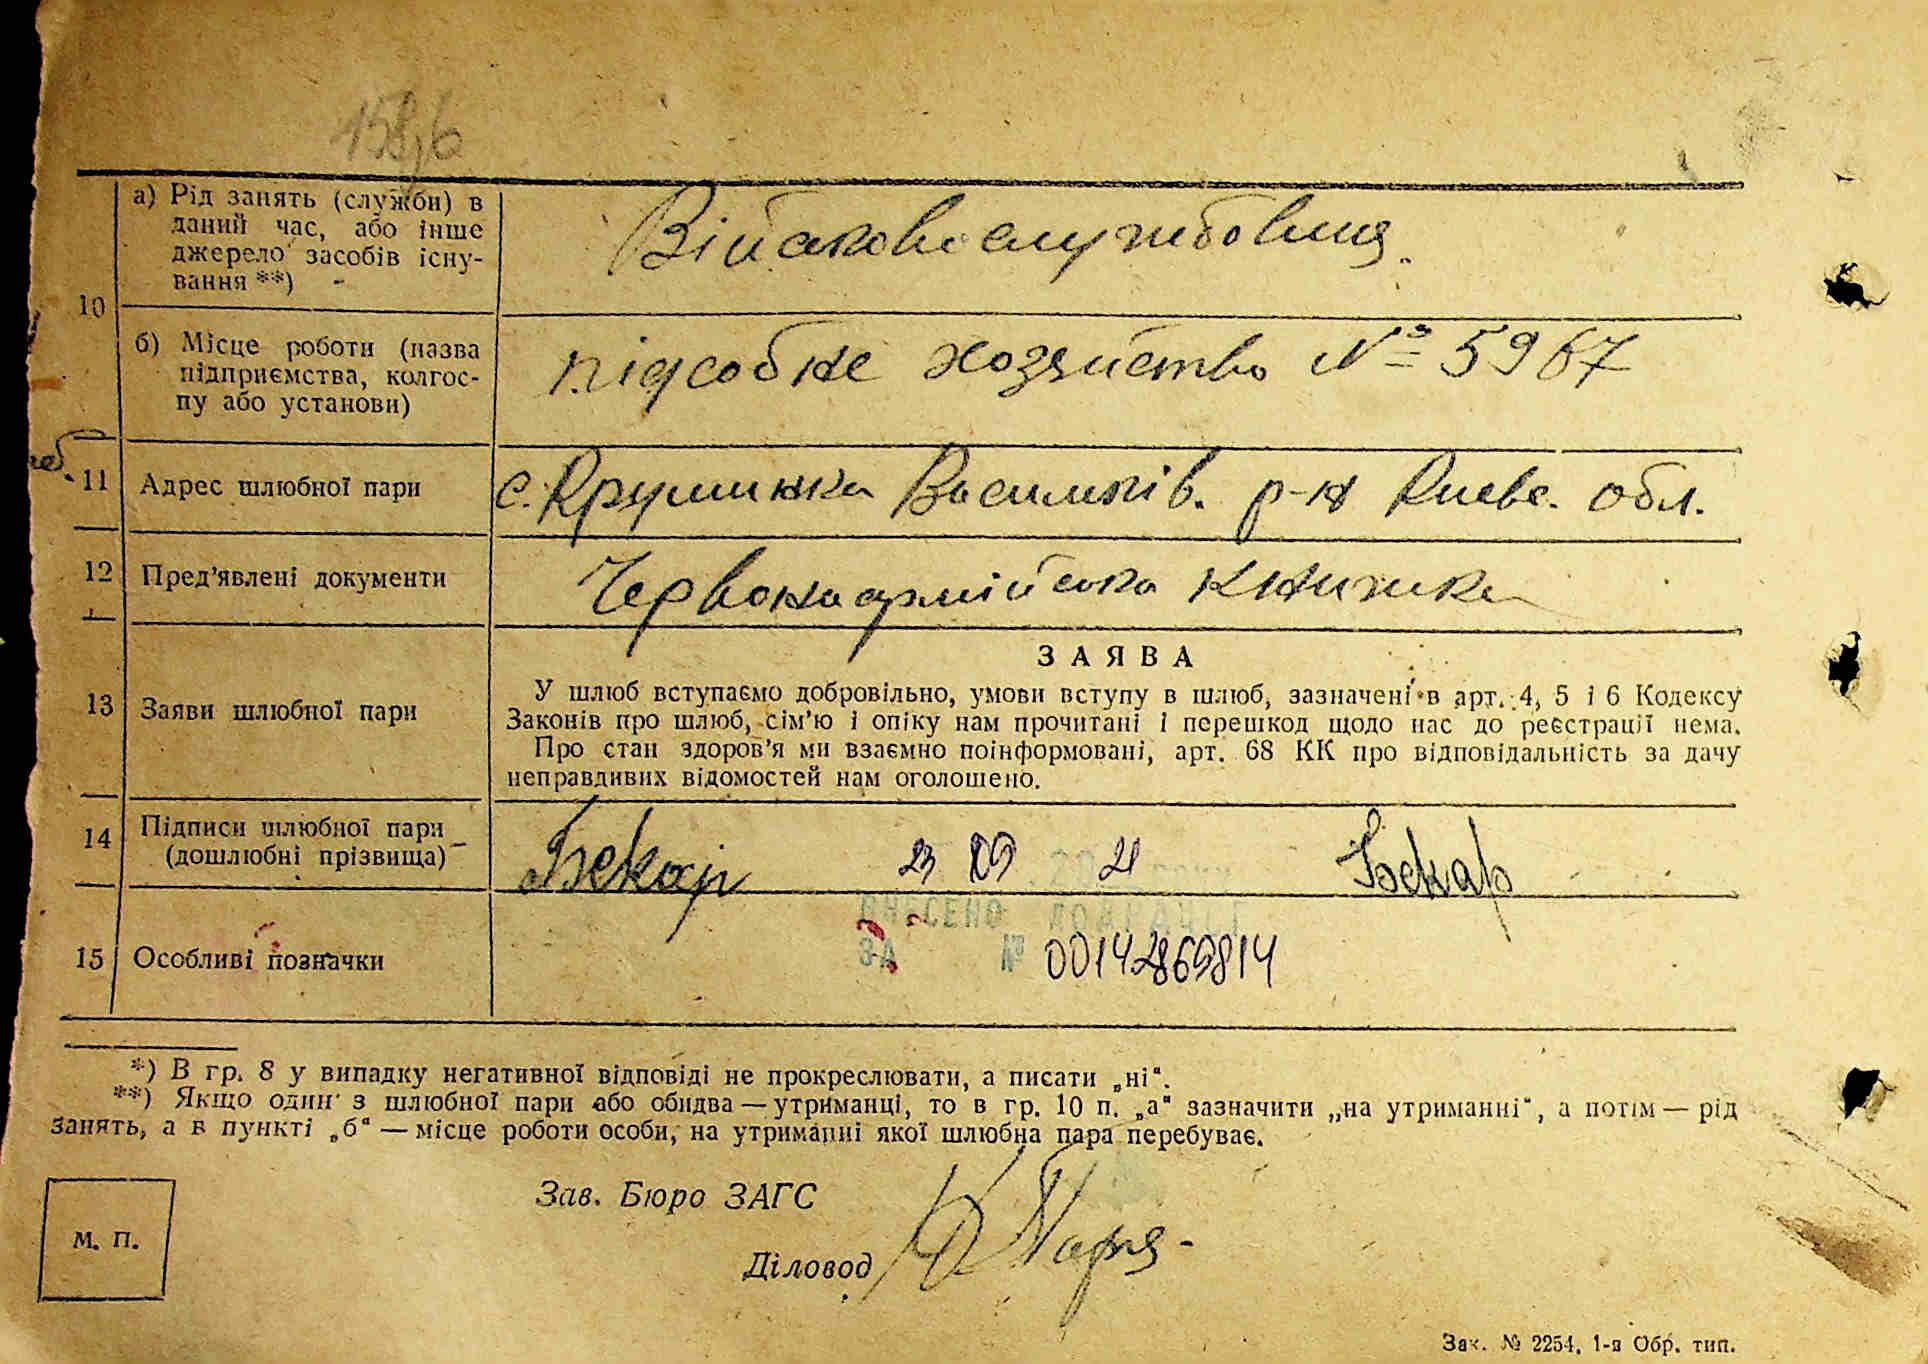 158,6
10
а) Рід занять (служби) в
даний час, або інше
джерело засобів існу-
вання **)
Військовослужбовиця.
б) Місце роботи (назва
підприємства, колгос-
пу або установи)
підсобне хозяйство № 5967
11 Адрес шлюбної пари
с. Крушинка Васильків. р-н Києвс. обл.
12 Пред’явлені документи
Червоноармійська книжка
13 Заяви шлюбної пари
ЗАЯВА
У шлюб вступаємо добровільно, умови вступу в шлюб, зазначені в арт. 4, 5 і 6 Кодексу
Законів про шлюб, сім’ю і опіку нам прочитані і перешкод щодо нас до реєстрації нема.
Про стан здоров’я ми взаємно поінформовані, арт. 68 КК про відповідальність за дачу
неправдивих відомостей нам оголошено.
14 Підписи шлюбної пари
(дошлюбні прізвища)
Бекар 23 09 21 Бекар
ВНЕСЕНО ДО ДРАЦСГ
15 Особливі позначки
ЗА № 00142869814
*) В гр. 8 у випадку негативної відповіді не прокреслювати, а писати „ні“.
**) Якщо один з шлюбної пари або обидва — утриманці, то в гр. 10 п. „а“ зазначити „на утриманні“, а потім — рід
занять, а в пункті „б“ — місце роботи особи, на утриманні якої шлюбна пара перебуває.
Зав. Бюро ЗАГС
М. П.
Діловод
Зак. № 2254, 1-я Обр. тип.